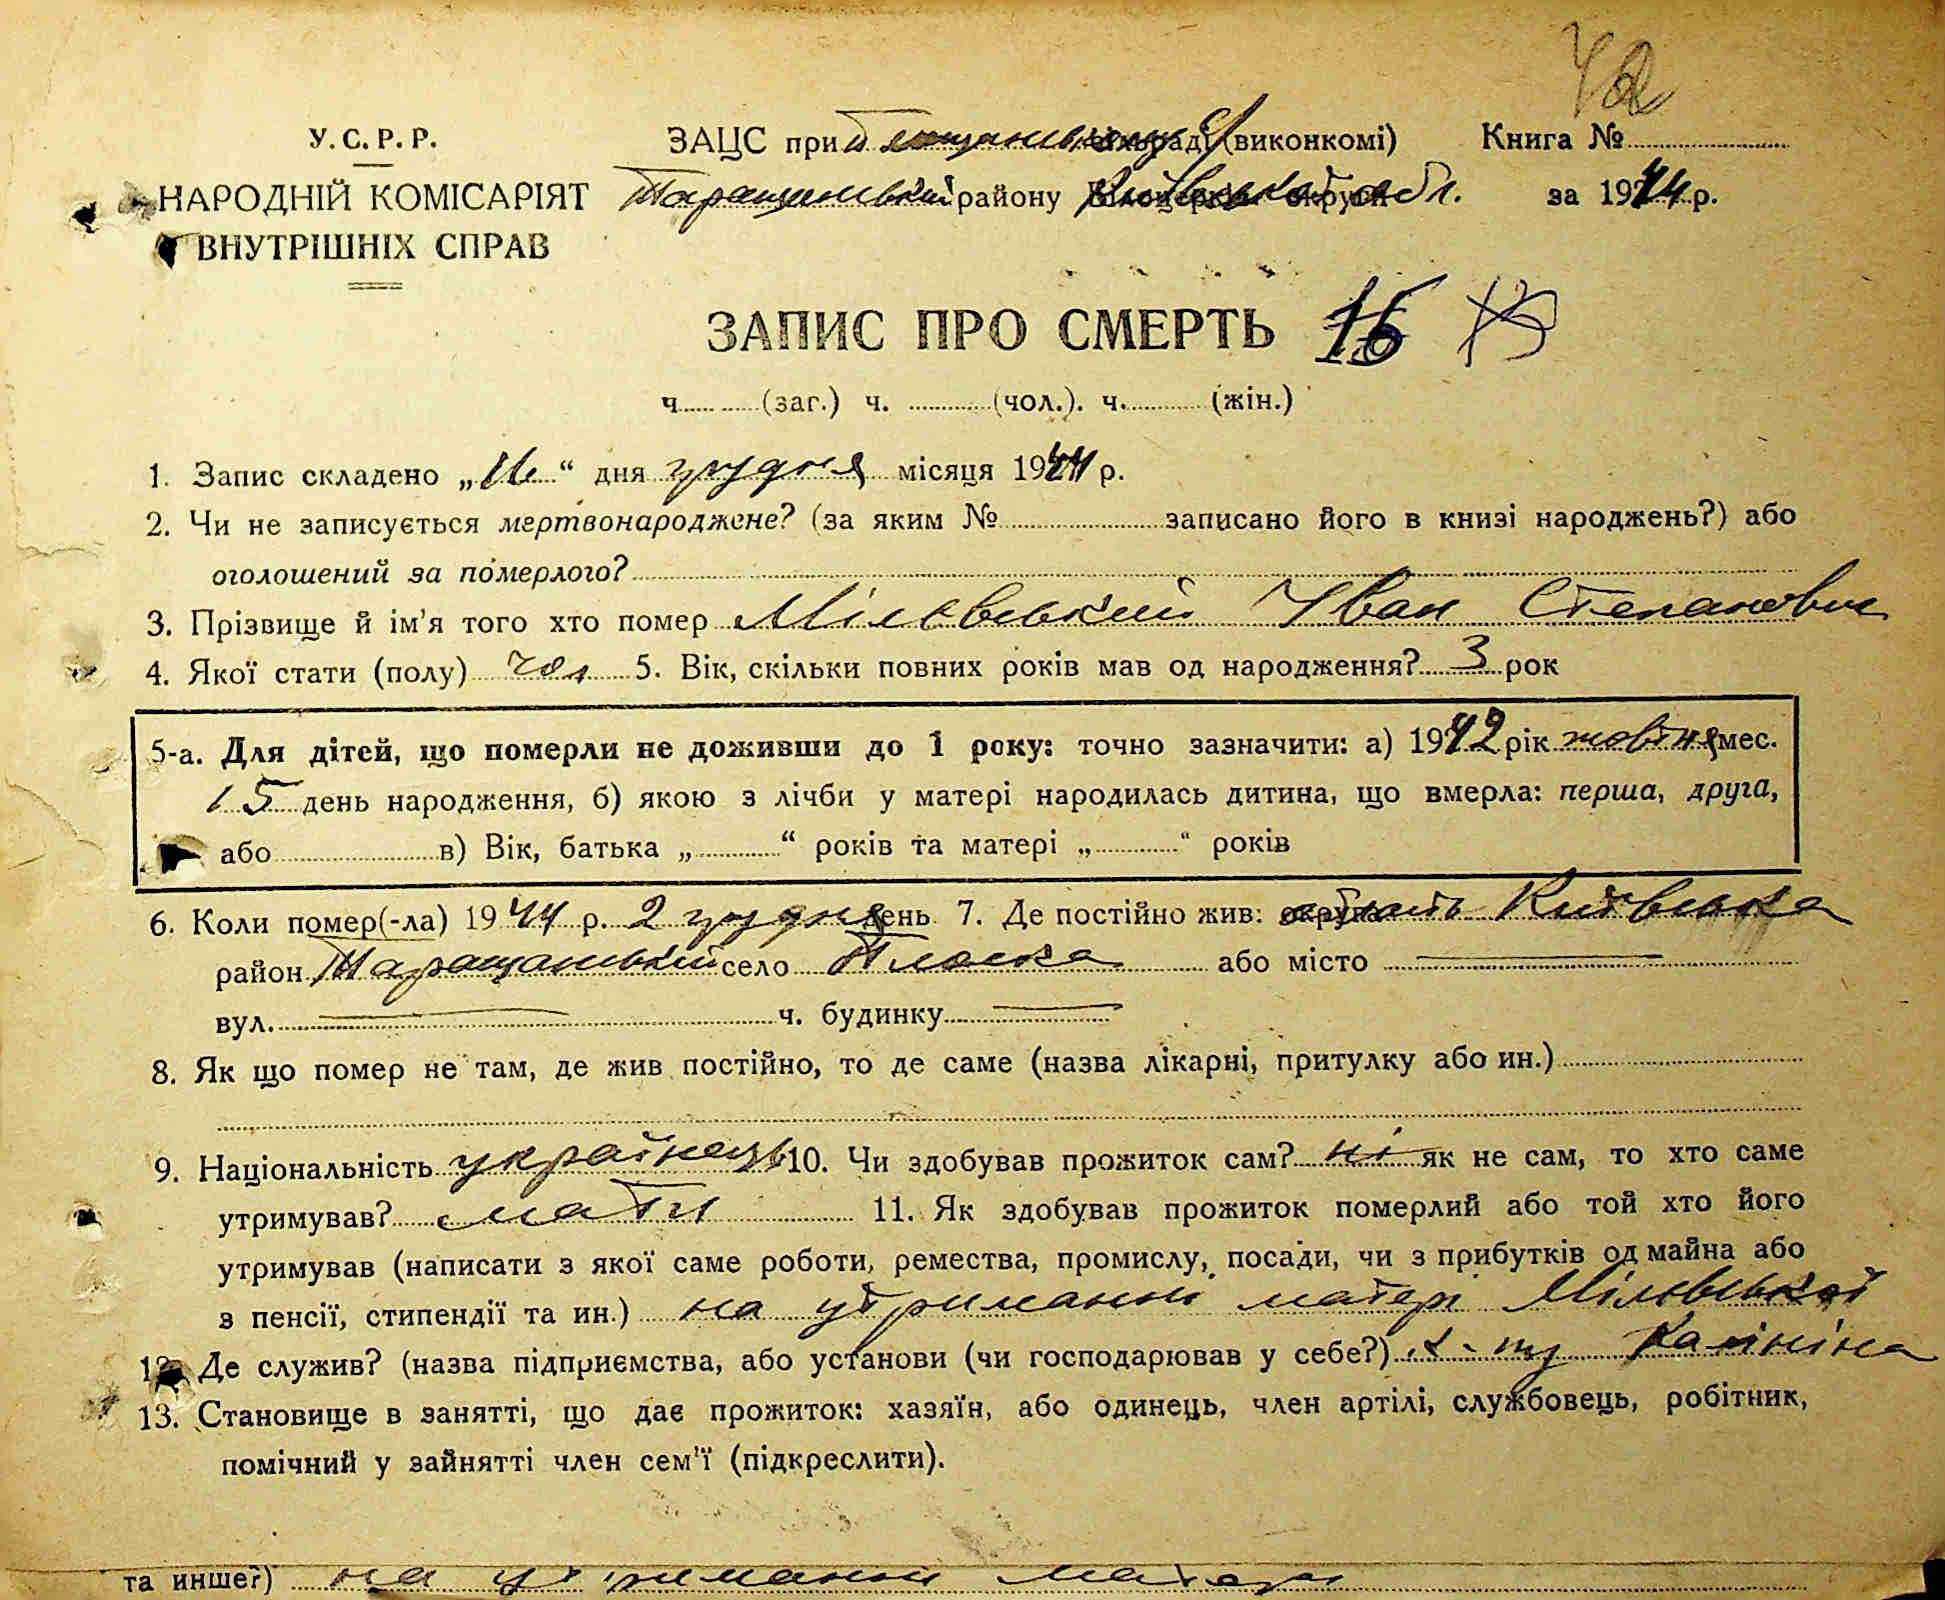 42
У.С.Р.Р.
ЗАЦС при сільраді (виконкомі) Книга №
НАРОДНІЙ КОМІСАРІЯТ
Таращанський району Київської обл. за 1944 р.
ВНУТРІШНІХ СПРАВ
ЗАПИС ПРО СМЕРТЬ
ч. (заг.) ч. (чол.). ч. (жін.)
1. Запис складено „ “ дня грудня місяця 1944 р.
2. Чи не записується мертвонароджене? (за яким № записано його в книзі народжень?) або
оголошений за померлого?
3. Прізвище й ім'я того хто помер Мілєвський Іван Степанович
4. Якої стати (полу) чол 5. Вік, скільки повних років мав од народження? 3 рок
5-а. Для дітей, що померли не доживши до 1 року: точно зазначити: а) 1942 рік жовтня мес.
15 день народження, б) якою з лічби у матері народилась дитина, що вмерла: перша, друга,
або в) Вік, батька „ “ років та матері „ “ років
6. Коли помер(-ла) 1944 р. 2 грудня день 7. Де постійно жив: область Київська
район Таращанський село Плоска або місто
вул. ч. будинку
8. Як що помер не там, де жив постійно, то де саме (назва лікарні, притулку або ин.)
9. Національність українець 10. Чи здобував прожиток сам? ні як не сам, то хто саме
утримував? мати 11. Як здобував прожиток померлий або той хто його
утримував (написати з якої саме роботи, ремества, промислу, посади, чи з прибутків од майна або
з пенсії, стипендії та ин.) на утриманні матері Мілєвської
12. Де служив? (назва підприємства, або установи (чи господарював у себе?) к-пу Калініна
13. Становище в занятті, що дає прожиток: хазяїн, або одинець, член артілі, службовець, робітник,
помічний у зайнятті член сем'ї (підкреслити).
та инше?) на утриманні матері